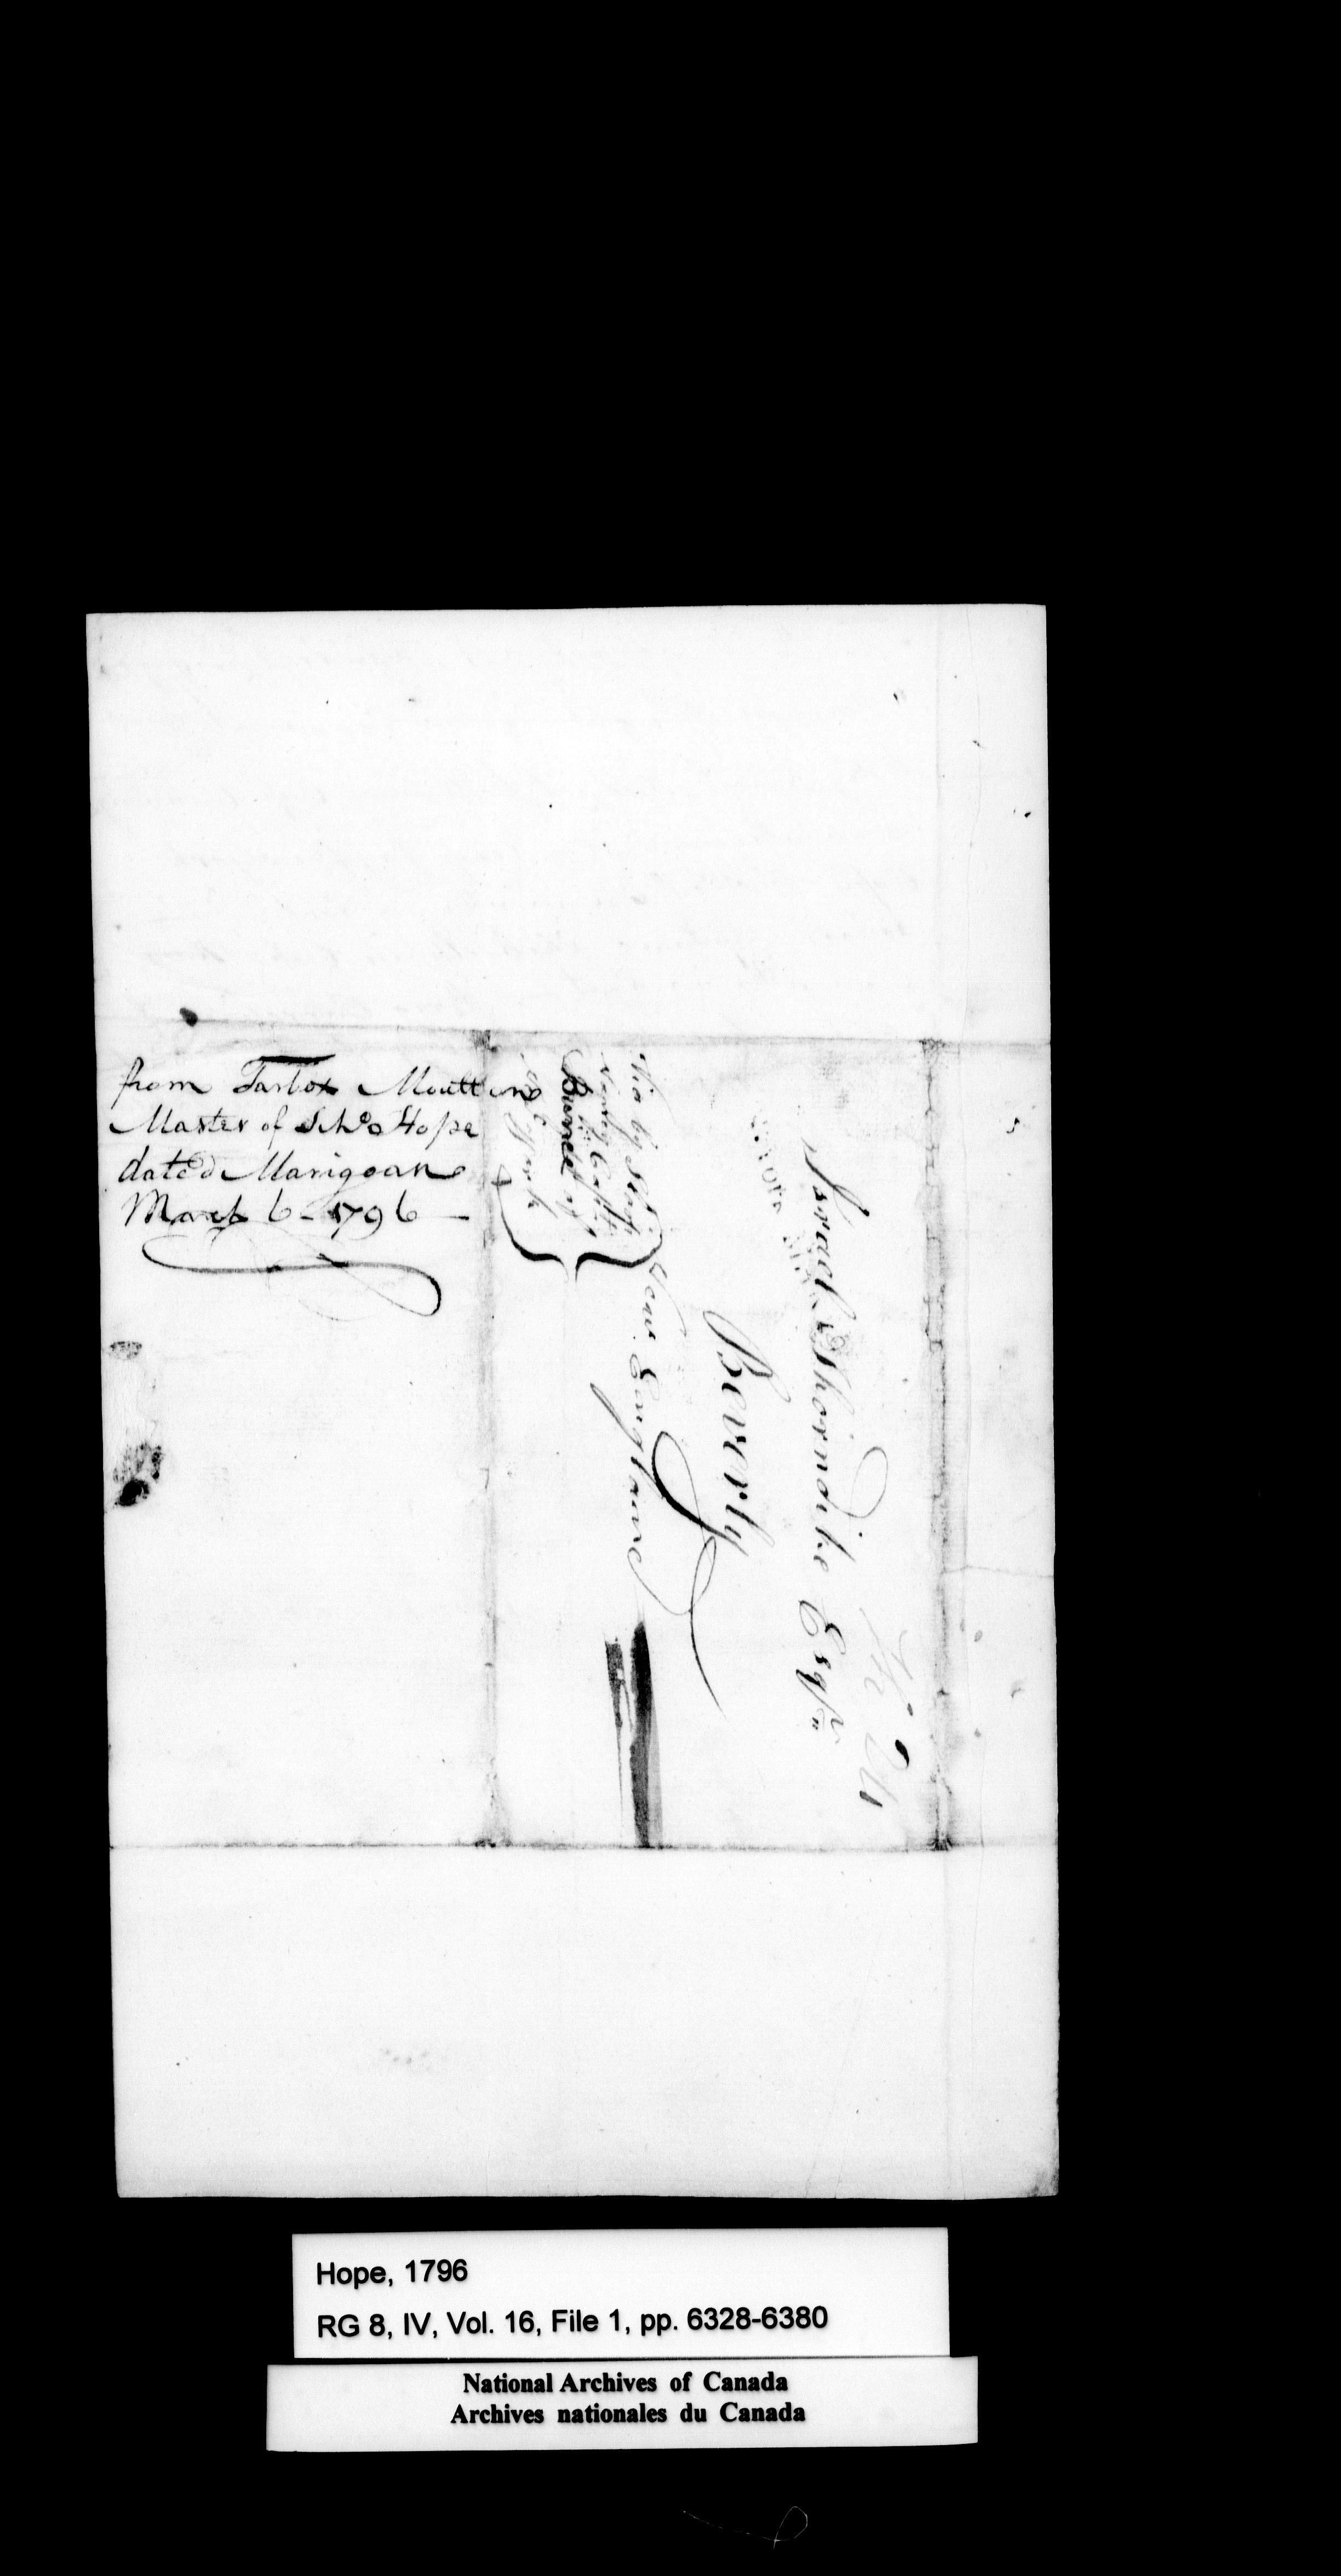 from Tarbox Moulton
Master of Schº Hope
dated Marigoan
March 6 - 1796
Israel Thorndike Esqr
Beverly
New England
Nº 24
Hope, 1796
RG 8, IV, Vol. 16, File 1, pp. 6328-6380
National Archives of Canada
Archives nationales du Canada